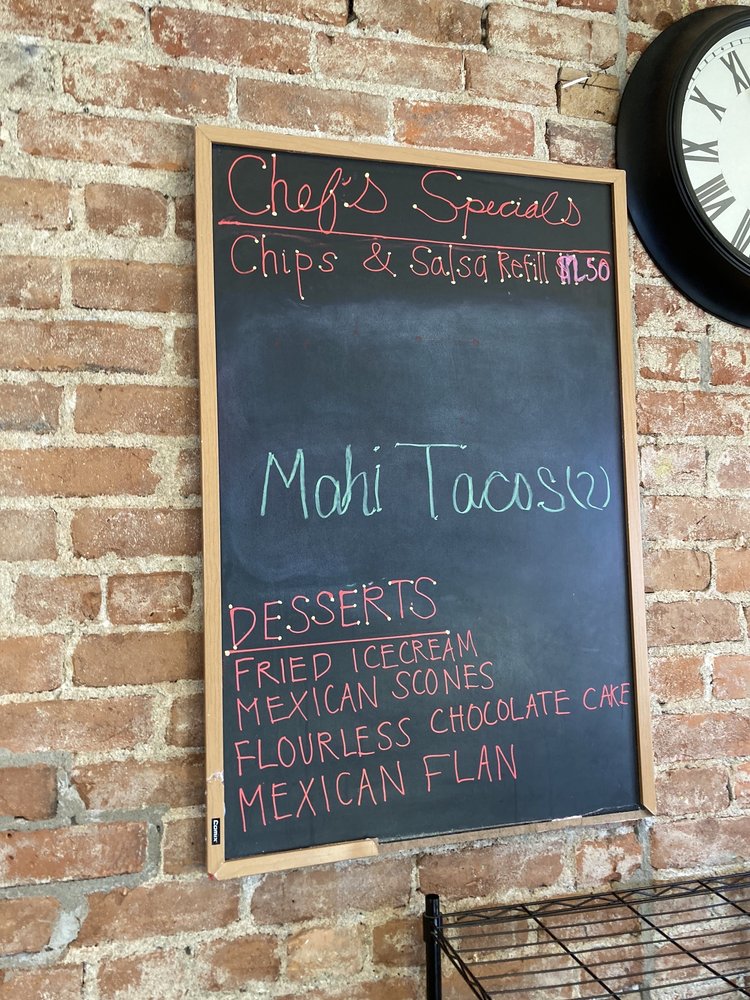 Chef's Specials
Chips & Salsa Refill $1.50
Mahi Tacos(2)
DESSERTS
FRIED ICECREAM
MEXICAN SCONES
FLOURLESS CHOCOLATE CAKE
MEXICAN FLAN
Comix
XI
X
IX
VIII
VII